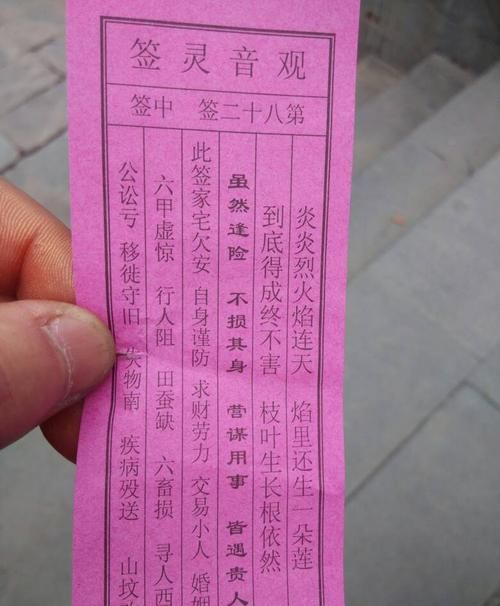 观音灵签
第八十二签 中签
炎炎烈火焰连天 焰里还生一朵莲
到底得成终不害 枝叶生长根依然
虽然逢险 不损其身 营谋用事 皆遇贵人
此签家宅欠安 自身谨防 求财劳力 交易小人 婚姻
六甲虚惊 行人阻 田蚕缺 六畜损 寻人西
公讼亏 移徙守旧 失物南 疾病殁送 山坟